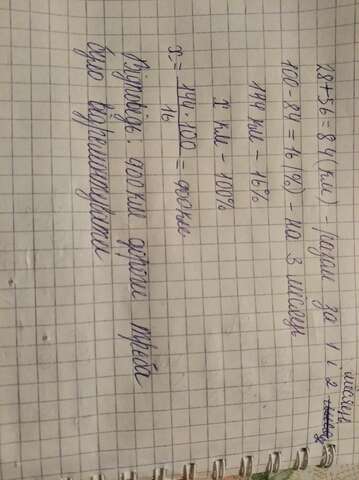 28+56=84(км) - разом за 1 і 2 місяць
100-84=16(%) - на 3 місяць
144 км - 16%
x км - 100%
x = 144·100 / 16 = 900км
Відповідь: 900км дороги треба
було відремонтувати